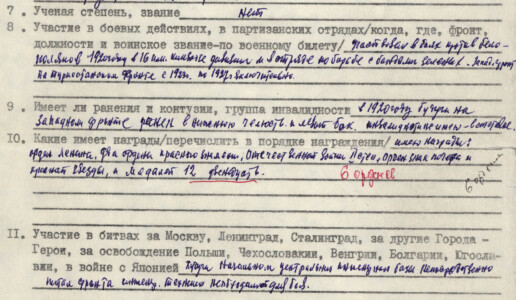 7. Ученая степень, звание нет
8. Участие в боевых действиях, в партизанских отрядах/когда, где, фронт,
должности и воинское звание-по военному билету/ участвовал в боях против бело-
поляков 1920 году в 16 дивизии и в отряде по борьбе с бандами
на Туркестанском фронте с 1923г. по 1927 включительно.
9. Имеет ли ранения и контузии, группа инвалидности в 1920 году будучи на
Западном фронте ранен в нижнюю челюсть и левый бок. инвалидности не имею
10. Какие имеет награды/перечислить в порядке награждения/ имею награды:
орден Ленина, два ордена красного знамени, Отечественной войны
красной звезды, и медалей 12 двенадцать. 6 орденов
II. Участие в битвах за Москву, Ленинград, Сталинград, за другие Города -
Герои, за освобождение Польши, Чехословакии, Венгрии, Болгарии, Югосла-
вии, в войне с Японией будучи Начальником центральной базы непосредственно
фронта